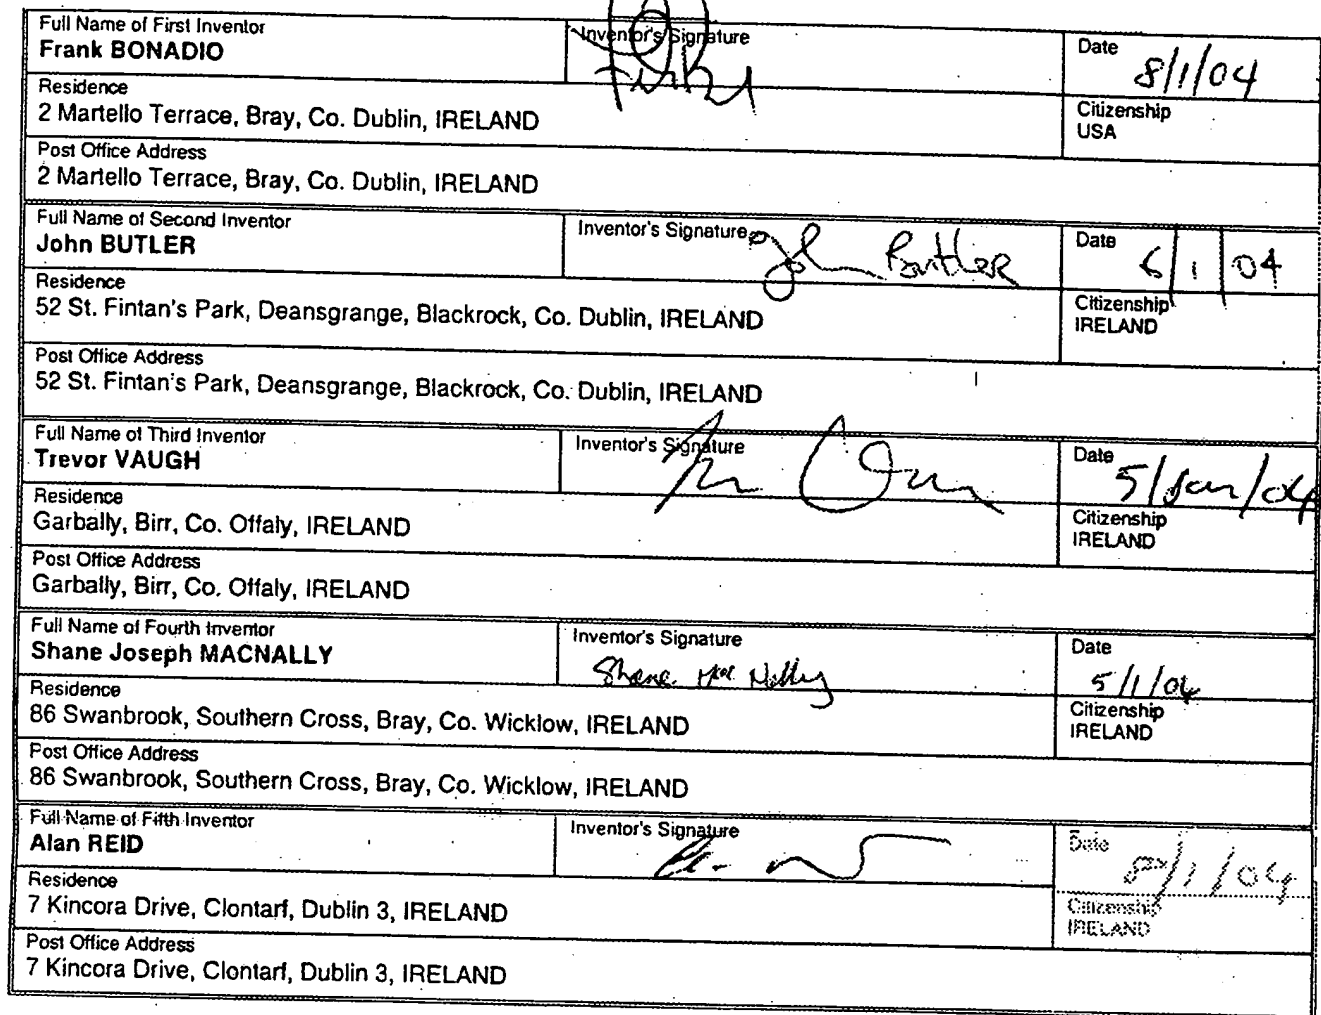 Full Name of First Inventor
Frank BONADIO
Inventor's Signature
Date
8/1/04
Residence
2 Martello Terrace, Bray, Co. Dublin, IRELAND
Citizenship
USA
Post Office Address
2 Martello Terrace, Bray, Co. Dublin, IRELAND
Full Name of Second Inventor
John BUTLER
Inventor's Signature
John Butler
Date
6/1/04
Residence
52 St. Fintan's Park, Deansgrange, Blackrock, Co. Dublin, IRELAND
Citizenship
IRELAND
Post Office Address
52 St. Fintan's Park, Deansgrange, Blackrock, Co. Dublin, IRELAND
Full Name of Third Inventor
Trevor VAUGH
Inventor's Signature
Date
5/Jan/04
Residence
Garbally, Birr, Co. Offaly, IRELAND
Citizenship
IRELAND
Post Office Address
Garbally, Birr, Co. Offaly, IRELAND
Full Name of Fourth Inventor
Shane Joseph MACNALLY
Inventor's Signature
Shane Mac Nally
Date
5/1/04
Residence
86 Swanbrook, Southern Cross, Bray, Co. Wicklow, IRELAND
Citizenship
IRELAND
Post Office Address
86 Swanbrook, Southern Cross, Bray, Co. Wicklow, IRELAND
Full Name of Fifth Inventor
Alan REID
Inventor's Signature
Date
8/1/04
Residence
7 Kincora Drive, Clontarf, Dublin 3, IRELAND
Citizenship
IRELAND
Post Office Address
7 Kincora Drive, Clontarf, Dublin 3, IRELAND